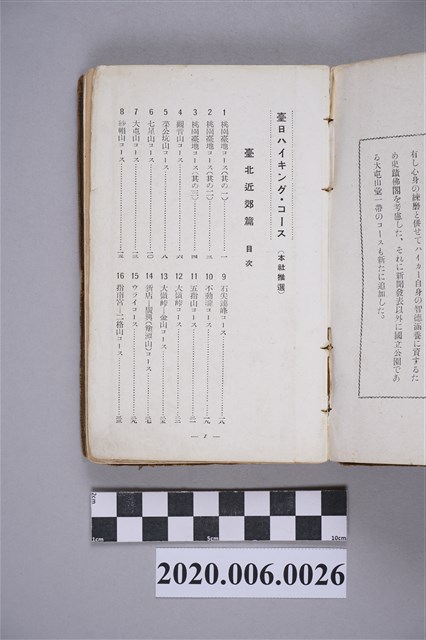 有し心身の練磨と併せてハイカー自身の智德涵養に資するた
め史蹟佛閣を考慮した、それに新聞發表以外に國立公園であ
る大屯山彙一帶のコースも新たに追加した。
臺日ハイキング・コース（本社推選）
臺北近郊篇 目次
1 桃園臺地コース（其の一）……一
2 桃園臺地コース（其の二）……三
3 桃園臺地コース（其の三）……四
4 觀音山コース……六
5 菜公坑山コース……八
6 七星山コース……一〇
7 大屯山コース……
8 紗帽山コース……一五
9 石尖連峰コース……一八
10 不動瀧コース……一九
11 五指山コース……二一
12 大嶺峠コース……
13 大嶺峠—金山コース……
14 新店—廣興（獅頭山）コース……二七
15 ウライコース……二九
16 指南宮—二格山コース……三三
— 1 —
2cm
1cm
5cm
10cm
2020.006.0026